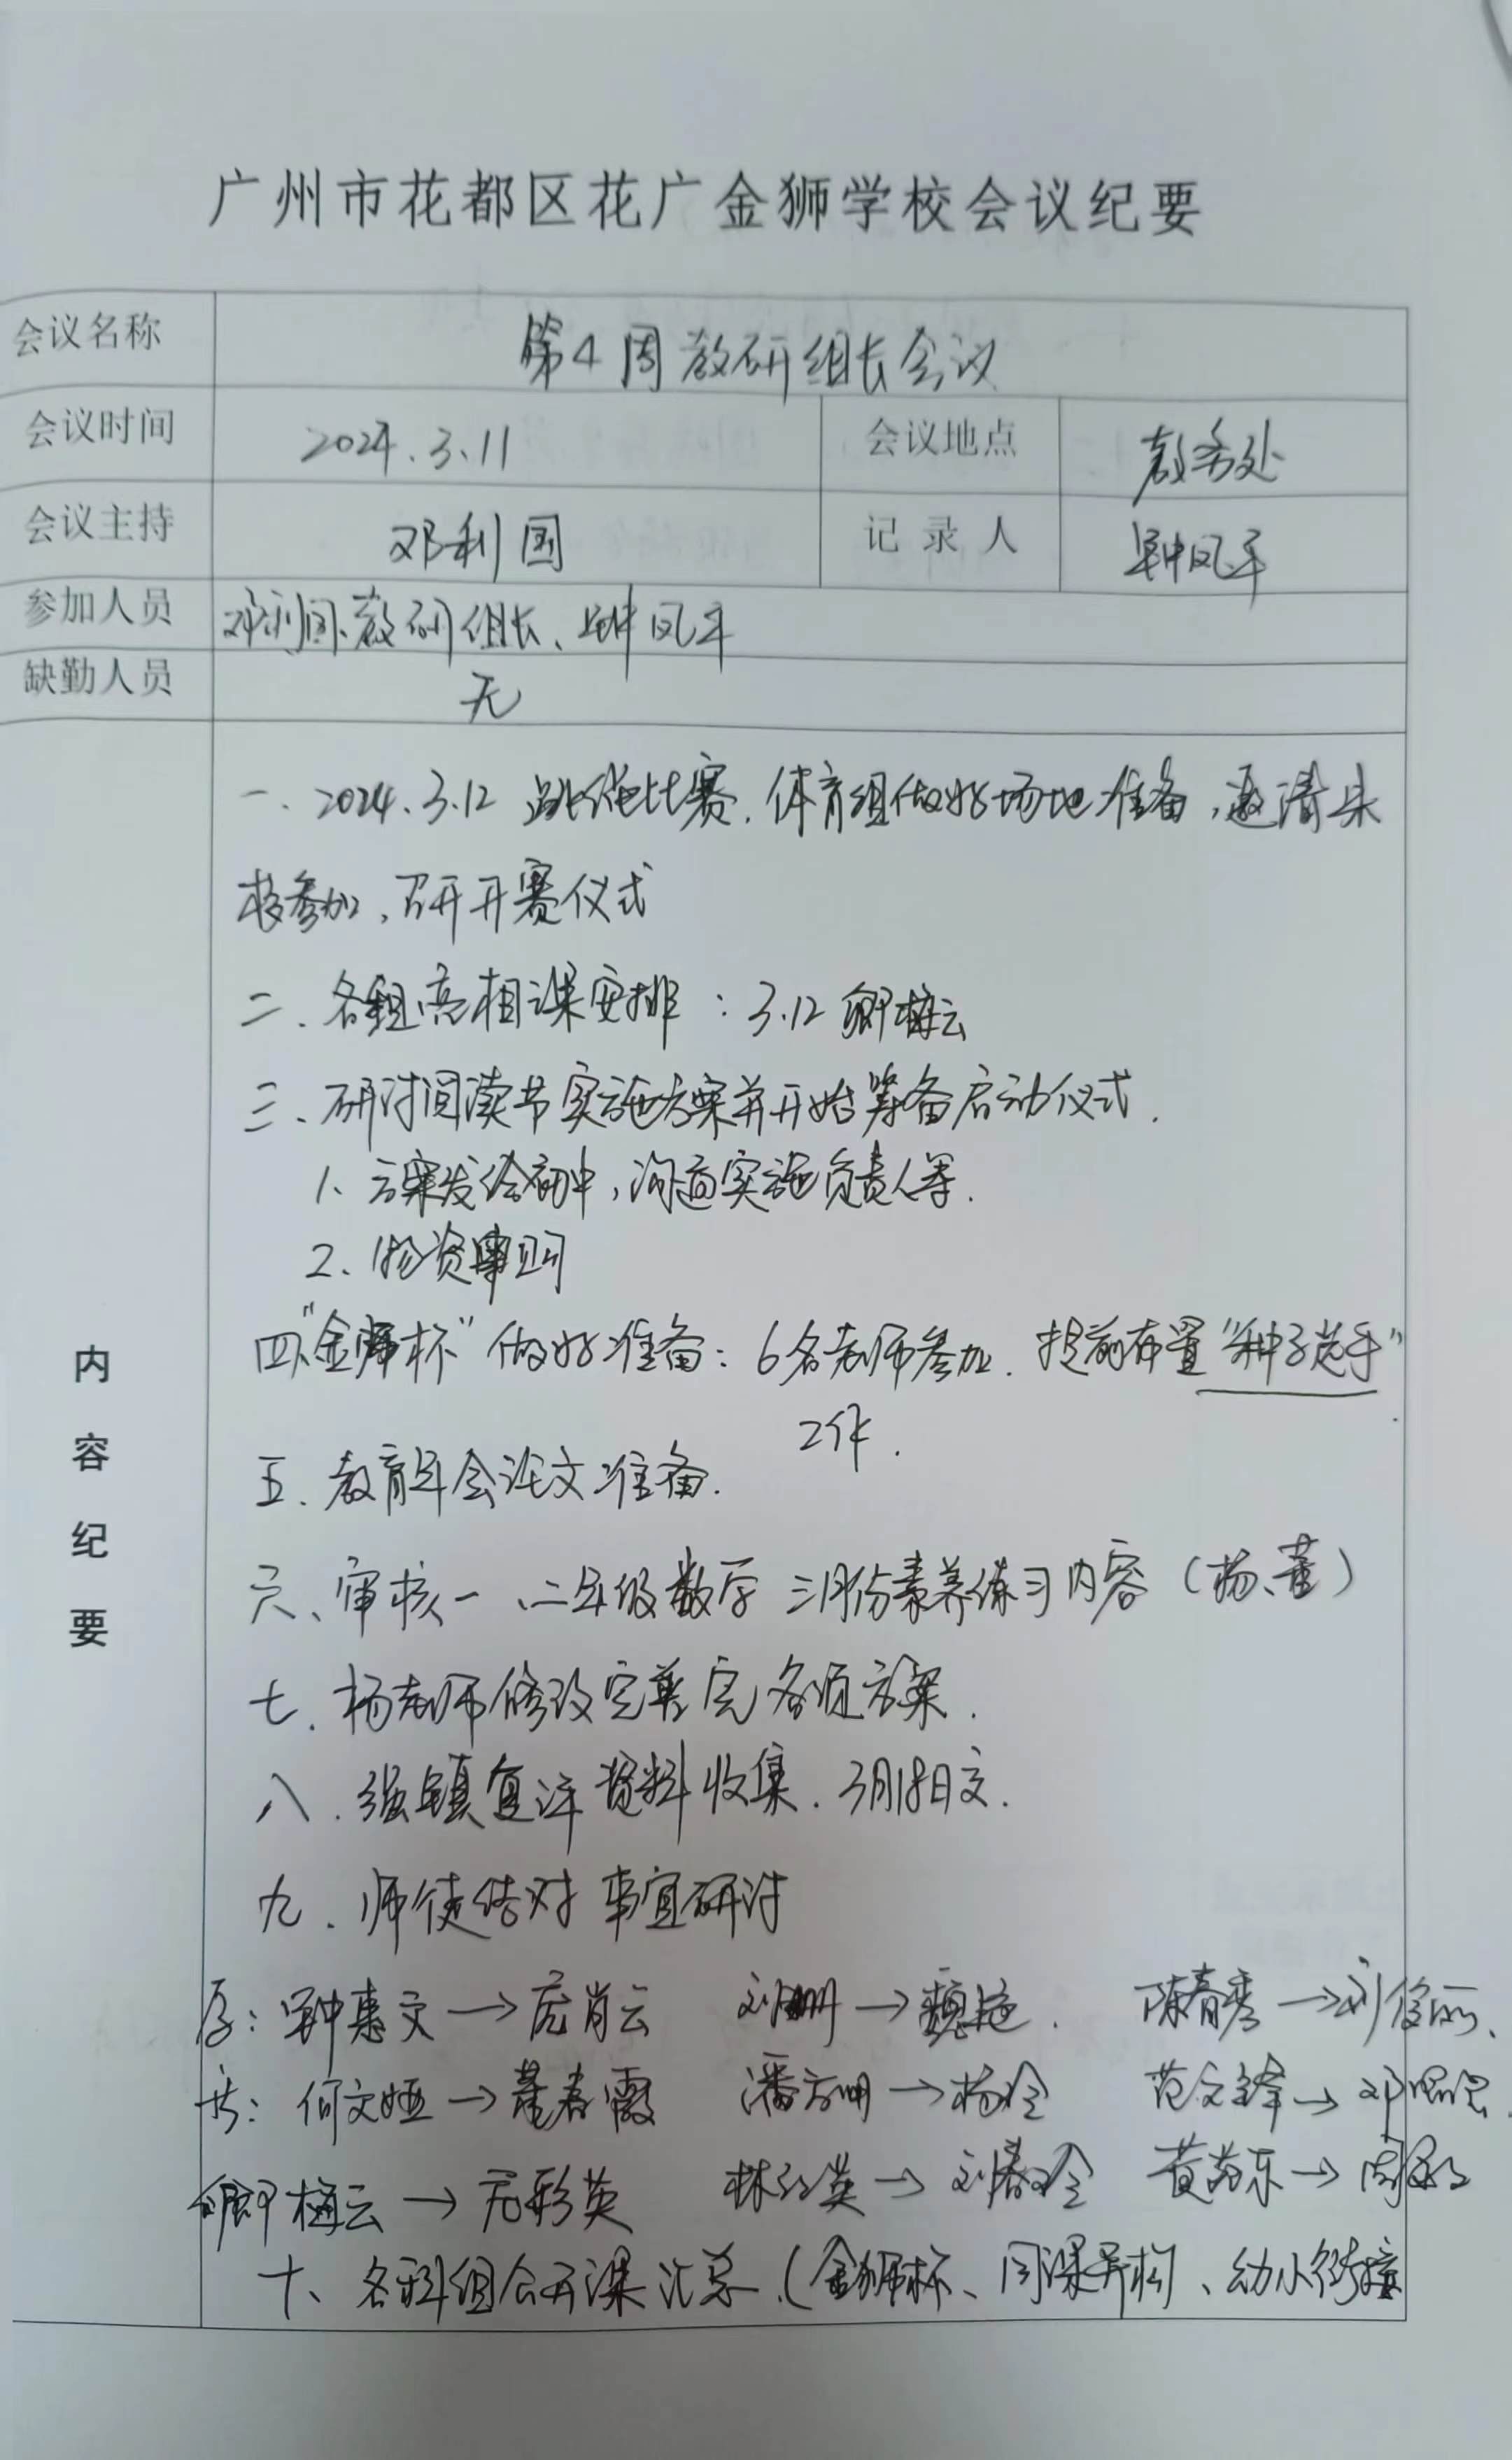 广州市花都区花广金狮学校会议纪要
会议名称 第4周教研组长会议
会议时间 2024.3.11 会议地点 教务处
会议主持 邓利国 记录人 钟凤平
参加人员 邓利国、教研组长、钟凤平
缺勤人员 无
内容纪要
一、2024.3.12 跳绳比赛.体育组做好场地准备,邀请朱
校参加,召开开赛仪式
二、各组亮相课安排:3.12 卿梅云
三、研讨阅读节实施方案并开始筹备启动仪式.
1、方案发给初中,沟通实施负责人等.
2、物资审购
四、"金狮杯"做好准备:6名老师参加.提前布置"种子选手"
工作.
五、教育年会论文准备.
六、审核一、二年级数学三月份素养练习内容(杨、董)
七、杨老师修改完善完各项方案.
八、强镇复评资料收集.3月18日交.
九、师徒结对事宜研讨
钟惠文→庞肖云 刘珊→魏艳. 陈春秀→刘俊丽、
何文娅→董春霞 潘方明→杨玲 范文锋→邓
卿梅云→彤英 林红英→刘春玲 黄 东→周
十、各科组公开课汇总.(金狮杯、同课异构、幼小衔接